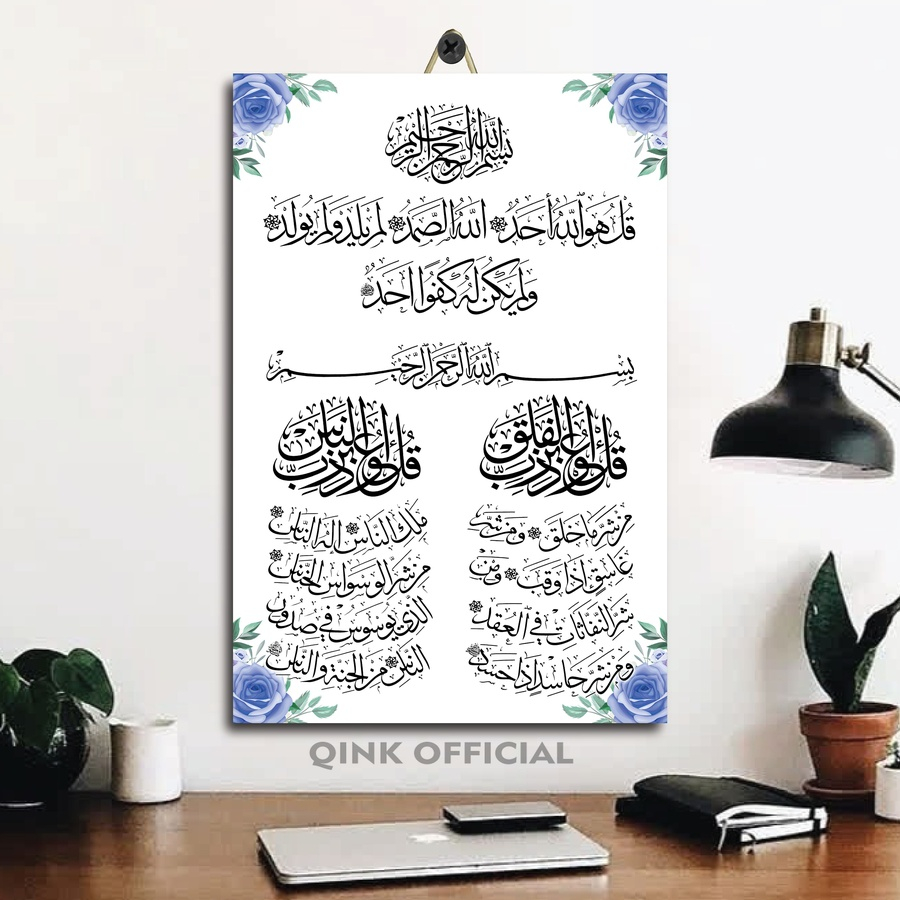 بسم الله الرحمن الرحيم
قُلْ هُوَ اللَّهُ أَحَدٌ اللَّهُ الصَّمَدُ لَمْ يَلِدْ وَلَمْ يُولَدْ
وَلَمْ يَكُنْ لَهُ كُفُوًا أَحَدٌ
بسم الله الرحمن الرحيم
قل أعوذ برب الفلق
من شر ما خلق ومن شر
غاسق اذا وقب ومن
شر النفاثات في العقد
ومن شر حاسد اذا حسد
قل أعوذ برب الناس
ملك الناس اله الناس
من شر الوسواس الخناس
الذي يوسوس في صدور
الناس من الجنة والناس
QINK OFFICIAL